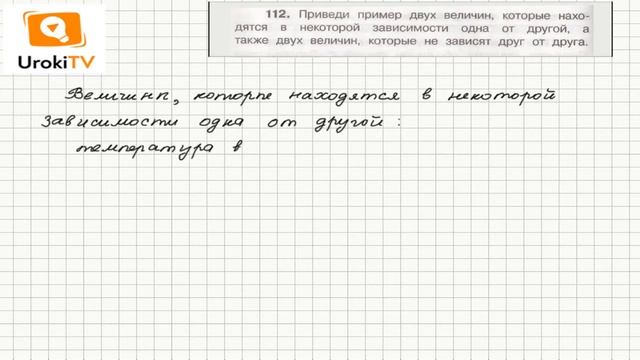 112. Приведи пример двух величин, которые нахо-
дятся в некоторой зависимости одна от другой, а
также двух величин, которые не зависят друг от друга.
UrokiTV
Величины, которые находятся в некоторой
зависимости одна от другой :
температура в